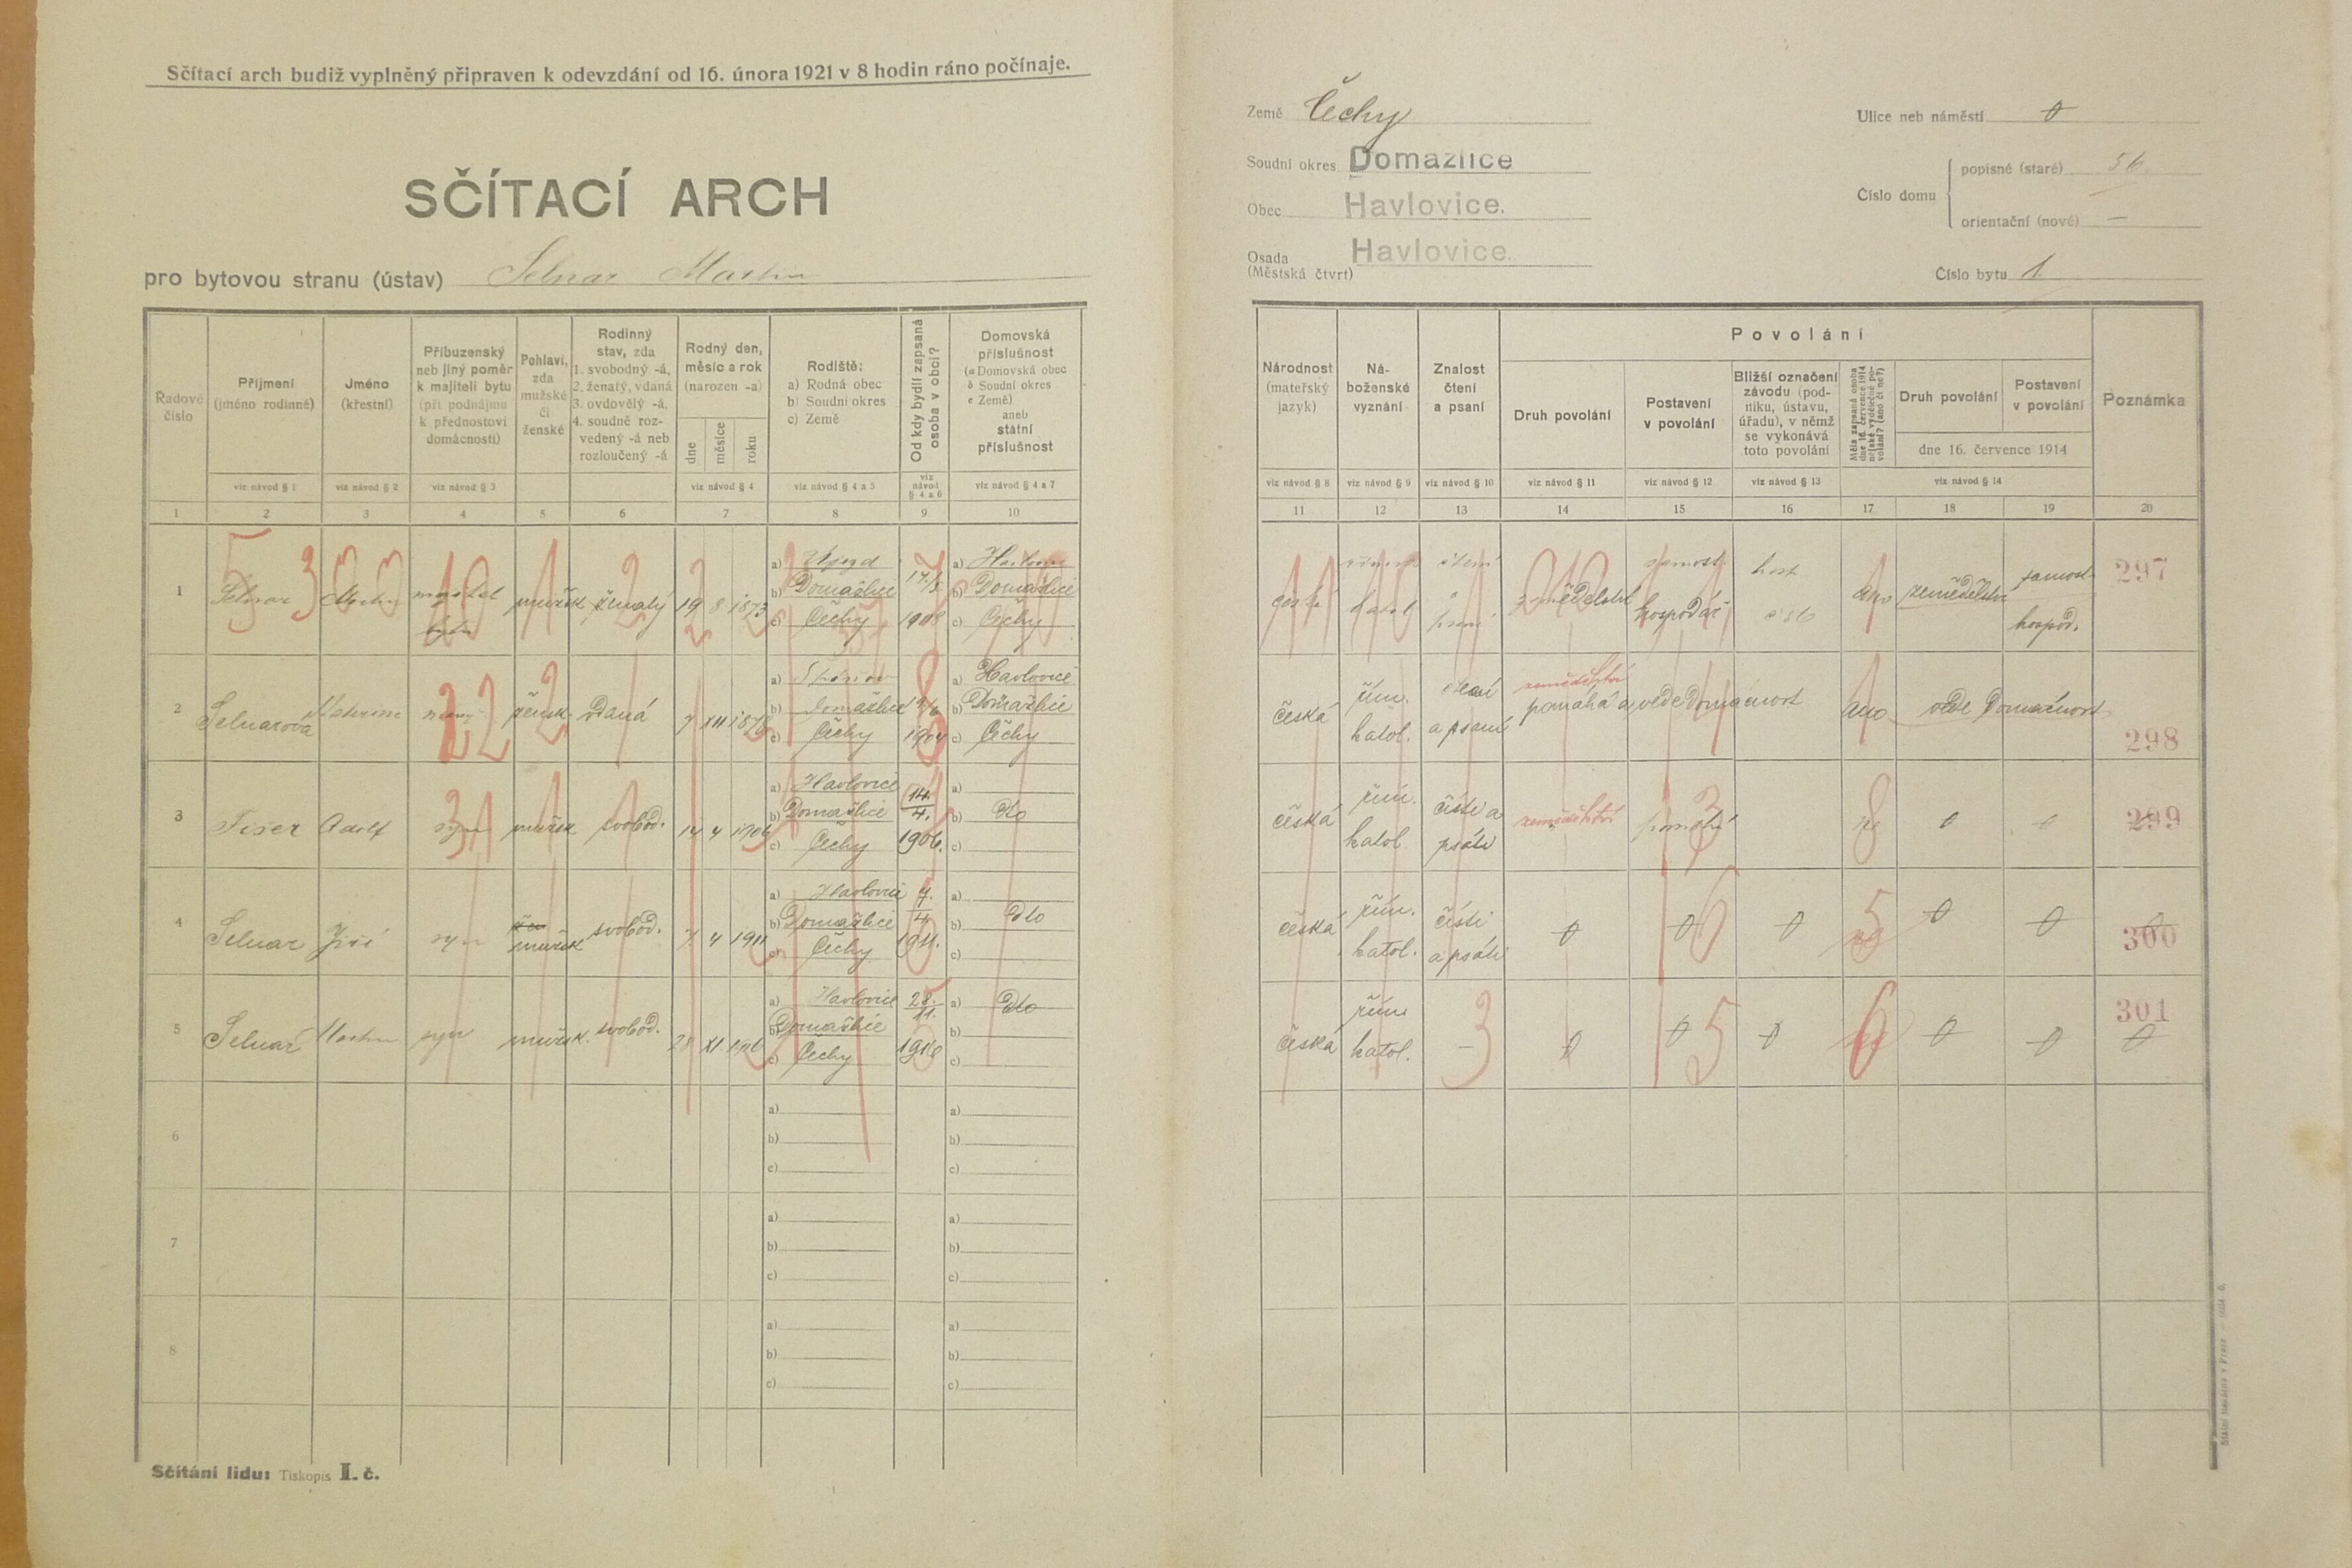 Sčítací arch budiž vyplněný připraven k odevzdání od 16. února 1921 v 8 hodin ráno počínaje.
SČÍTACÍ ARCH
pro bytovou stranu (ústav) Selnar Martin
Řadové číslo
Příjmení (jméno rodinné)
Jméno (křestní)
Příbuzenský neb jiný poměr k majiteli bytu (při podnájmu k přednostovi domácnosti)
Pohlaví, zda mužské či ženské
Rodinný stav, zda 1. svobodný -á, 2. ženatý, vdaná 3. ovdovělý -á, 4. soudně rozvedený -á neb rozloučený -á
Rodný den, měsíc a rok (narozen -a)
dne měsíce roku
Rodiště: a) Rodná obec b) Soudní okres c) Země
Od kdy bydlí zapsaná osoba v obci?
Domovská příslušnost (a Domovská obec b Soudní okres c Země) aneb státní příslušnost
viz návod § 1 viz návod § 2 viz návod § 3 viz návod § 4 viz návod § 4 a 5 viz návod § 4 a 6 viz návod § 4 a 7
1 2 3 4 5 6 7 8 9 10
1 Selnar Martin majitel bytu mužsk ženatý 19 8 1873
a) Újezd
b) Domažlice
c) Čechy
1908
a) Havlovice
b) Domažlice
c) Čechy
2 Selnarová žensk. vdaná 7 XII 1878
a)
b) Domažlice
c) Čechy
1904
a) Havlovice
b) Domažlice
c) Čechy
3 Tiser Adolf syn mužsk svobod. 14 4 1906
a) Havlovice
b) Domažlice
c) Čechy
14. 4. 1906.
a)
b) dto
c)
4 Selnar Jiří syn mužsk svobod. 7 4 1911
a) Havlovice
b) Domažlice
c) Čechy
7. 4. 1911.
a)
b) dto
c)
5 Selnar Martin syn mužsk. svobod. 28 XI 1916
a) Havlovice
b) Domažlice
c) Čechy
28. 11. 1916
a) dto
b)
c)
6
a) a)
b) b)
c) c)
7
a) a)
b) b)
c) c)
8
a) a)
b) b)
c) c)
Sčítání lidu: Tiskopis I. č.
Země Čechy
Soudní okres Domažlice
Obec Havlovice.
Osada (Městská čtvrť) Havlovice.
Ulice neb náměstí 0
Číslo domu
popisné (staré) 56
orientační (nové) —
Číslo bytu 1
Národnost (mateřský jazyk)
Náboženské vyznání
Znalost čtení a psaní
Povolání
Druh povolání
Postavení v povolání
Bližší označení závodu (podniku, ústavu, úřadu), v němž se vykonává toto povolání
Měla zapsaná osoba dne 16. července 1914 nějaké výdělečné povolání? (ano či ne?)
Druh povolání
Postavení v povolání
dne 16. července 1914
Poznámka
viz návod § 8 viz návod § 9 viz návod § 10 viz návod § 11 viz návod § 12 viz návod § 13 viz návod § 14
11 12 13 14 15 16 17 18 19 20
česká katol čtení psaní zemědělství samost. hospodář ano zemědělství samost. hospod. 297
česká řím. katol. čtení a psaní zemědělství pomáhá a vede domácnost ano vede domácnost 298
česká řím. katol. čísti a psáti zemědělství pomáhá ne 0 0 299
česká řím. katol. čísti a psáti 0 0 0 ne 0 0 300
česká řím. katol. – 0 0 0 0 0 301
0